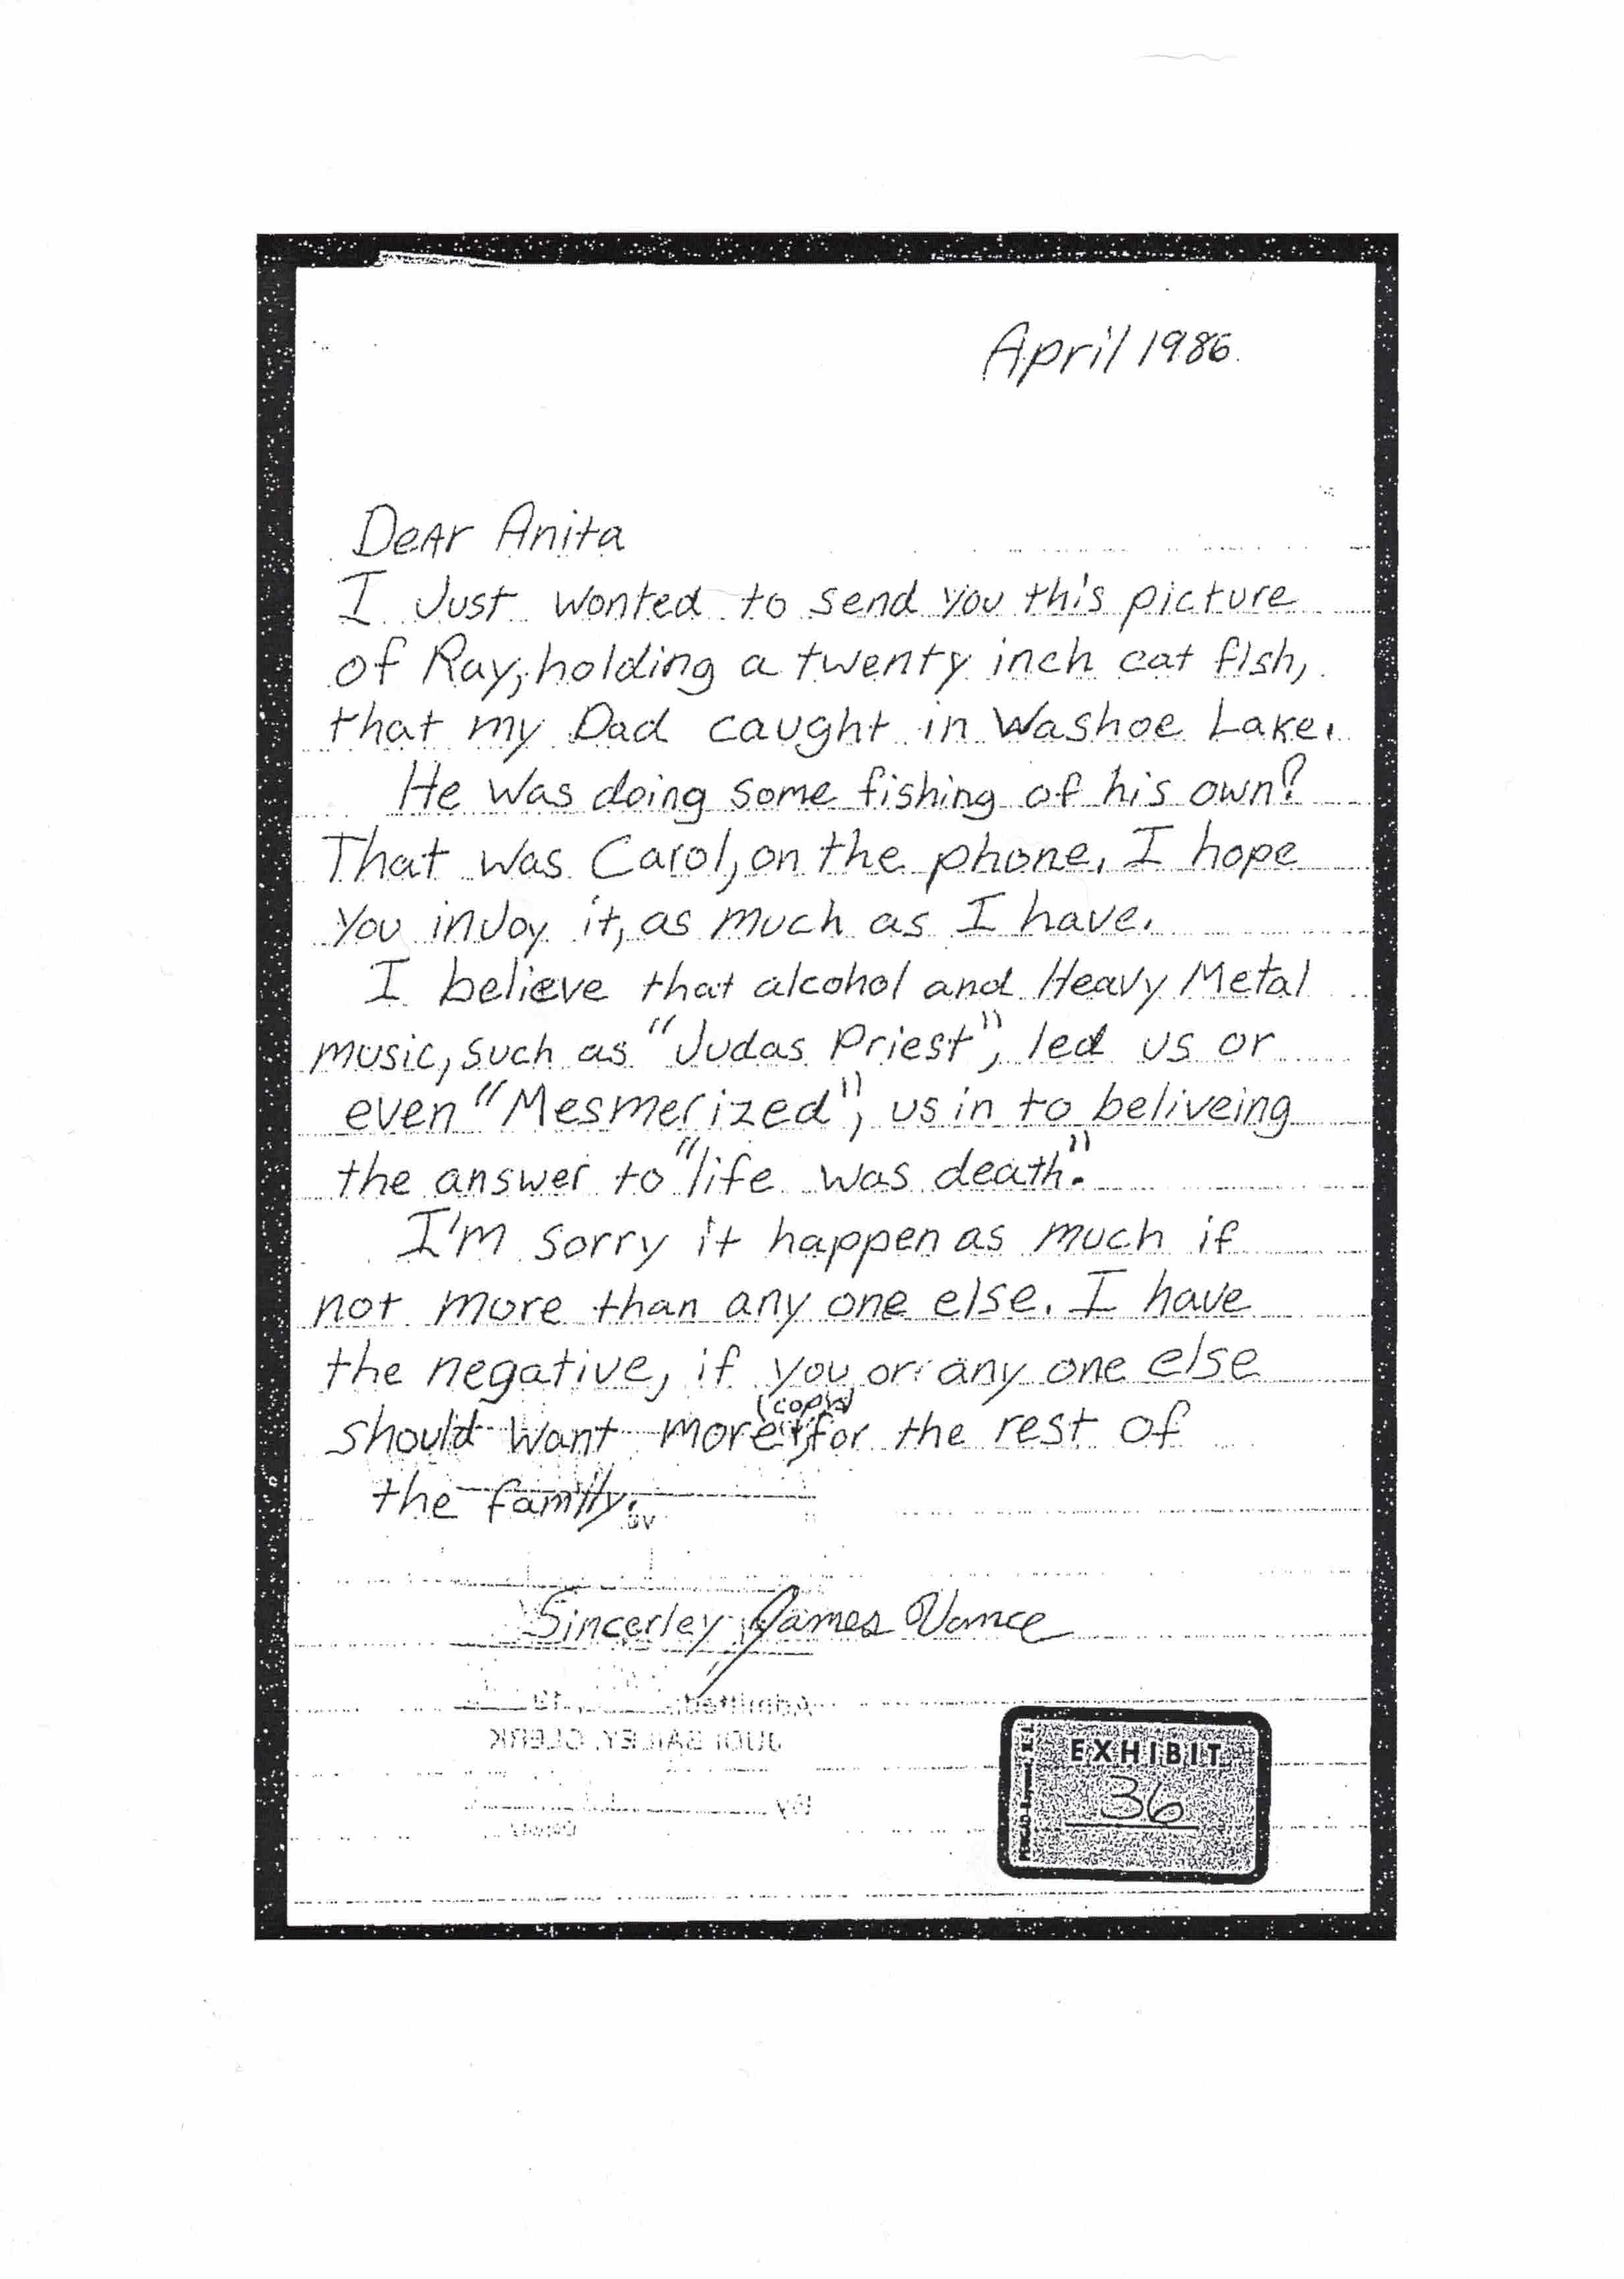 April 1986.
DeAr Anita
I Just wonted to send you this picture
of Ray, holding a twenty inch cat fish,
that my Dad caught in Washoe Lake.
He was doing some fishing of his own?
That was Carol, on the phone. I hope
you inJoy it, as much as I have.
I believe that alcohol and Heavy Metal
music, such as "Judas Priest", led us or
even "Mesmerized", us in to beliveing
the answer to "life was death".
I'm sorry it happen as much if
not more than any one else. I have
the negative, if you or any one else
(copys)
should want more, for the rest of
the family.
Sincerley James Vance
Admitted 19
JUDI BAILEY, CLERK
By
Deputy
EXHIBIT
36